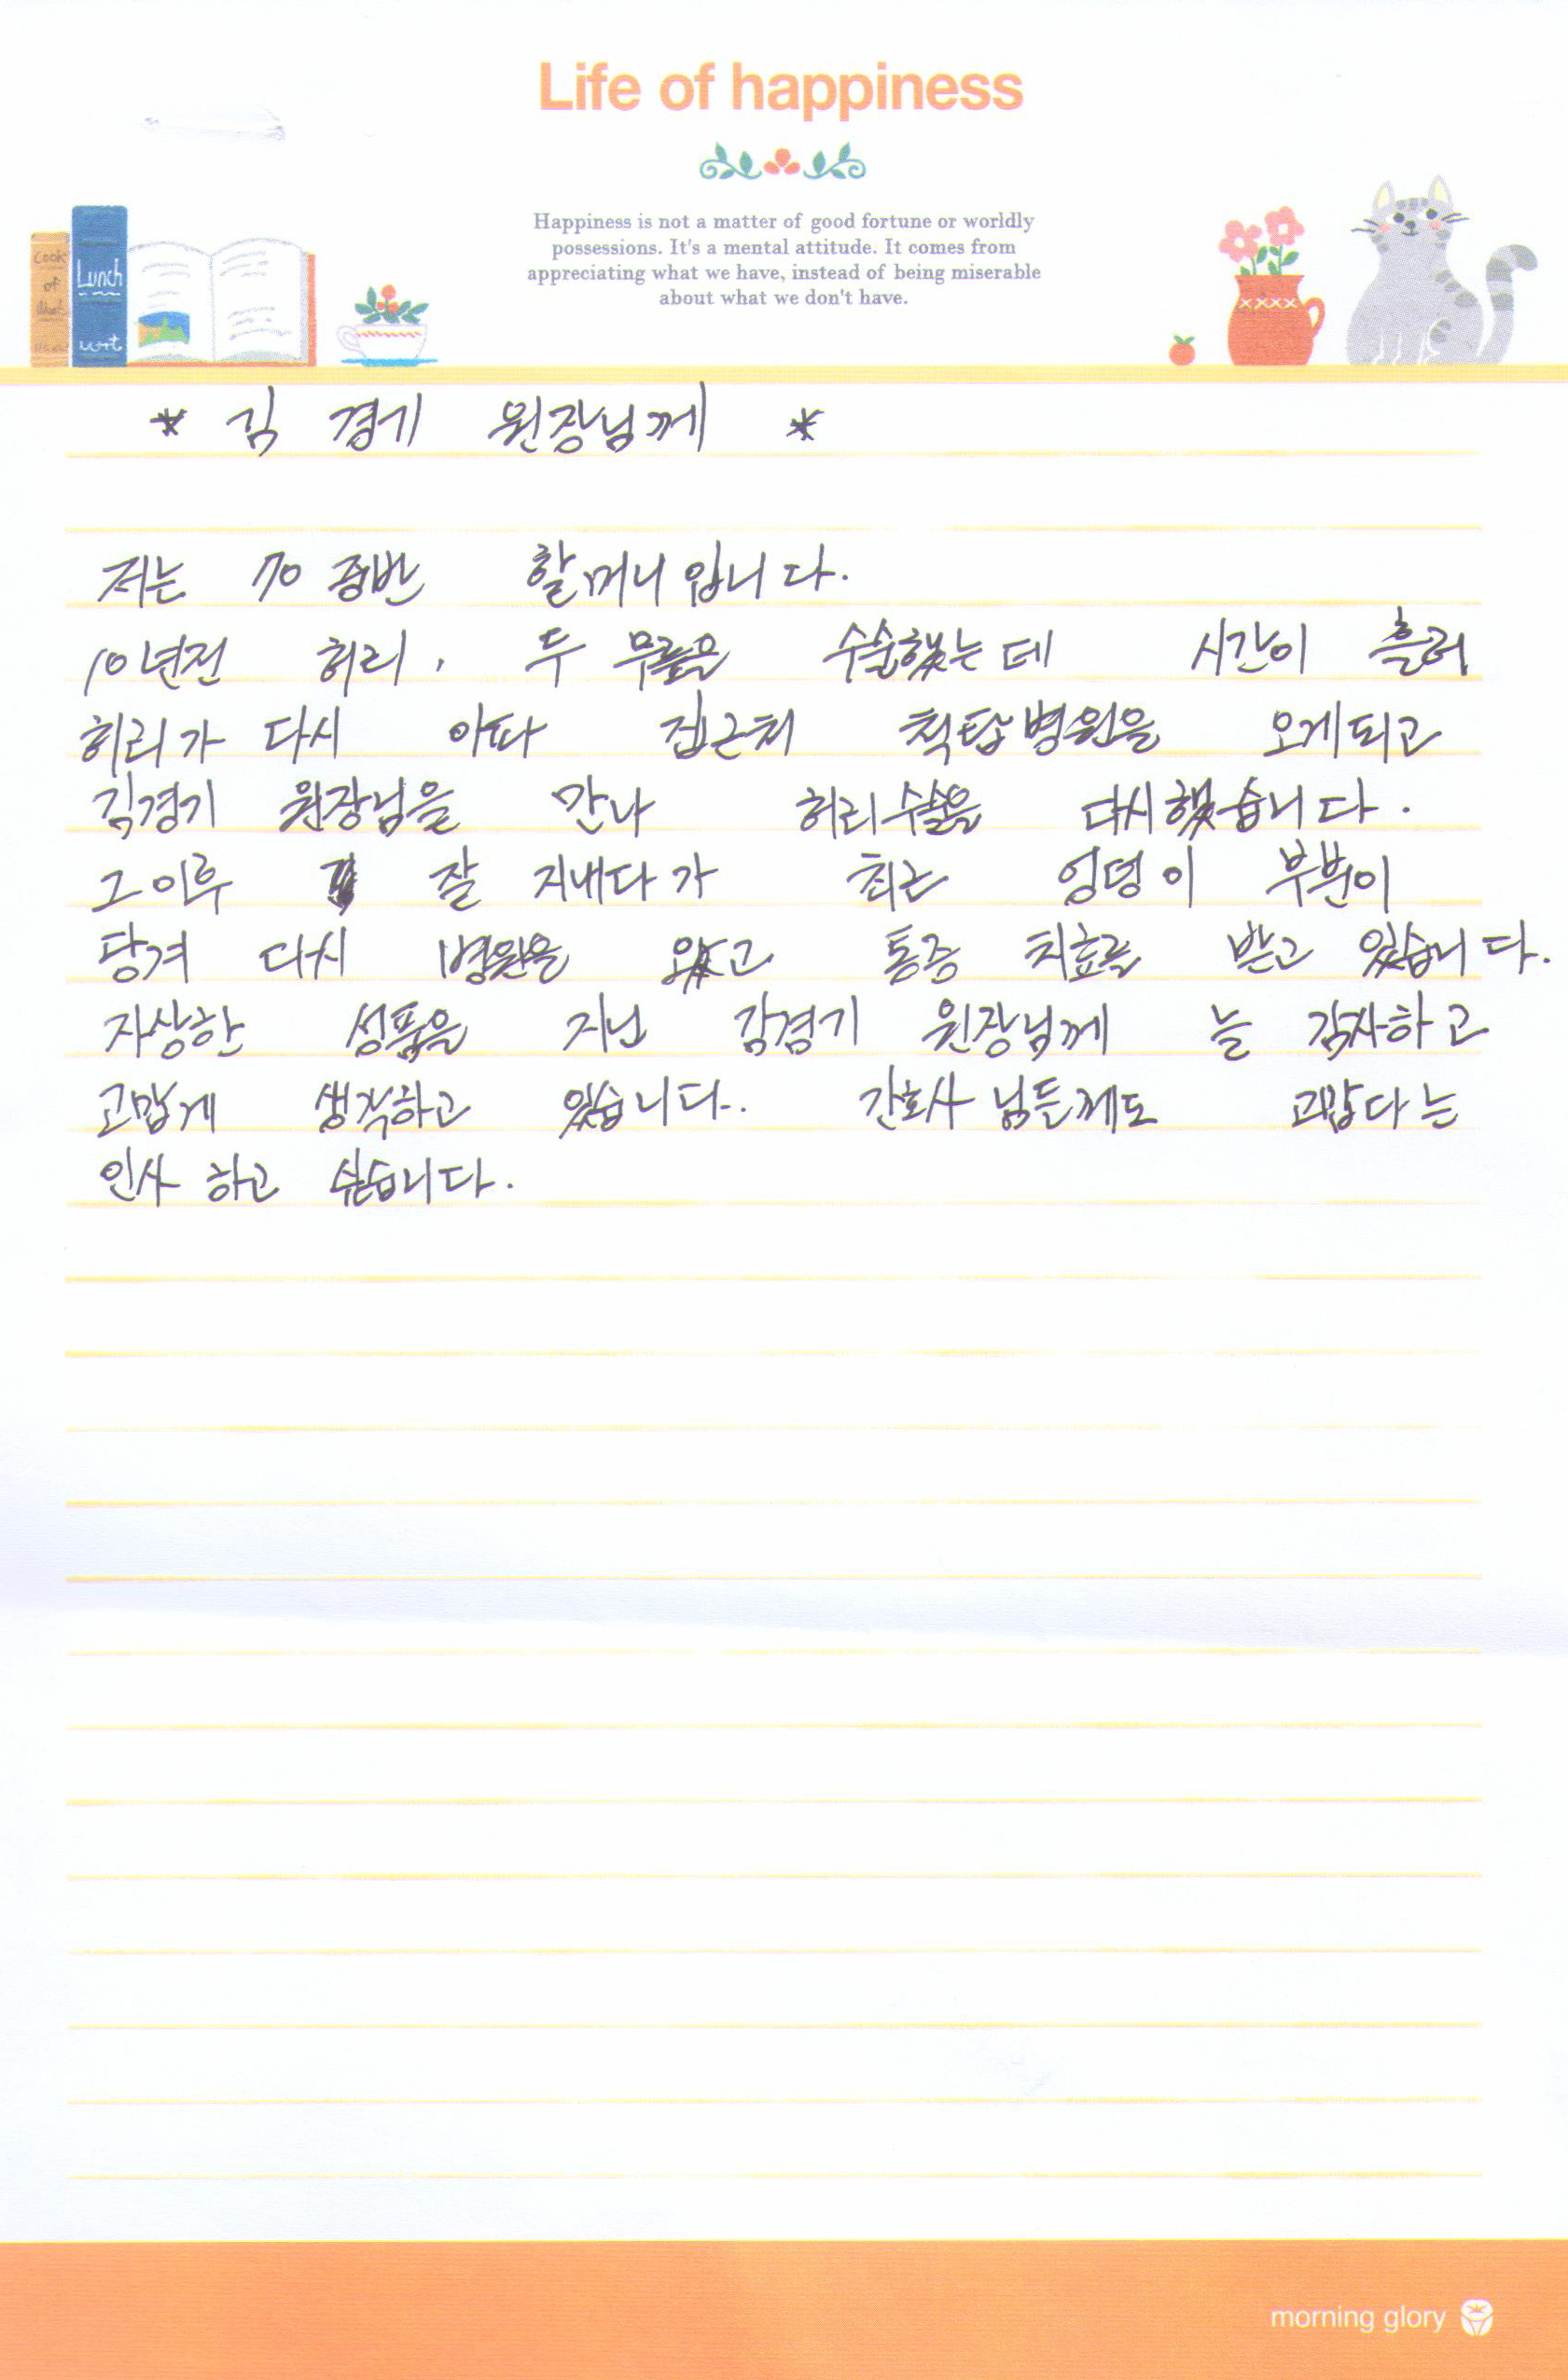 Life of happiness
Happiness is not a matter of good fortune or worldly
possessions. It's a mental attitude. It comes from
appreciating what we have, instead of being miserable
about what we don't have.
Cook
of
Lunch
* 김 경기 원장님께 *
저는 70 중반 할머니입니다.
10년전 허리, 두 무릎을 수술했는데 시간이 흘러
허리가 다시 아파 집근처 척탑병원을 오게되고
김경기 원장님을 만나 허리수술을 다시했습니다.
그이후 잘 지내다가 최근 엉덩이 부분이
당겨 다시 병원을 왔고 통증 치료를 받고 있습니다.
자상한 성품을 지닌 김경기 원장님께 늘 감사하고
고맙게 생각하고 있습니다. 간호사님들께도 고맙다는
인사 하고 싶습니다.
morning glory